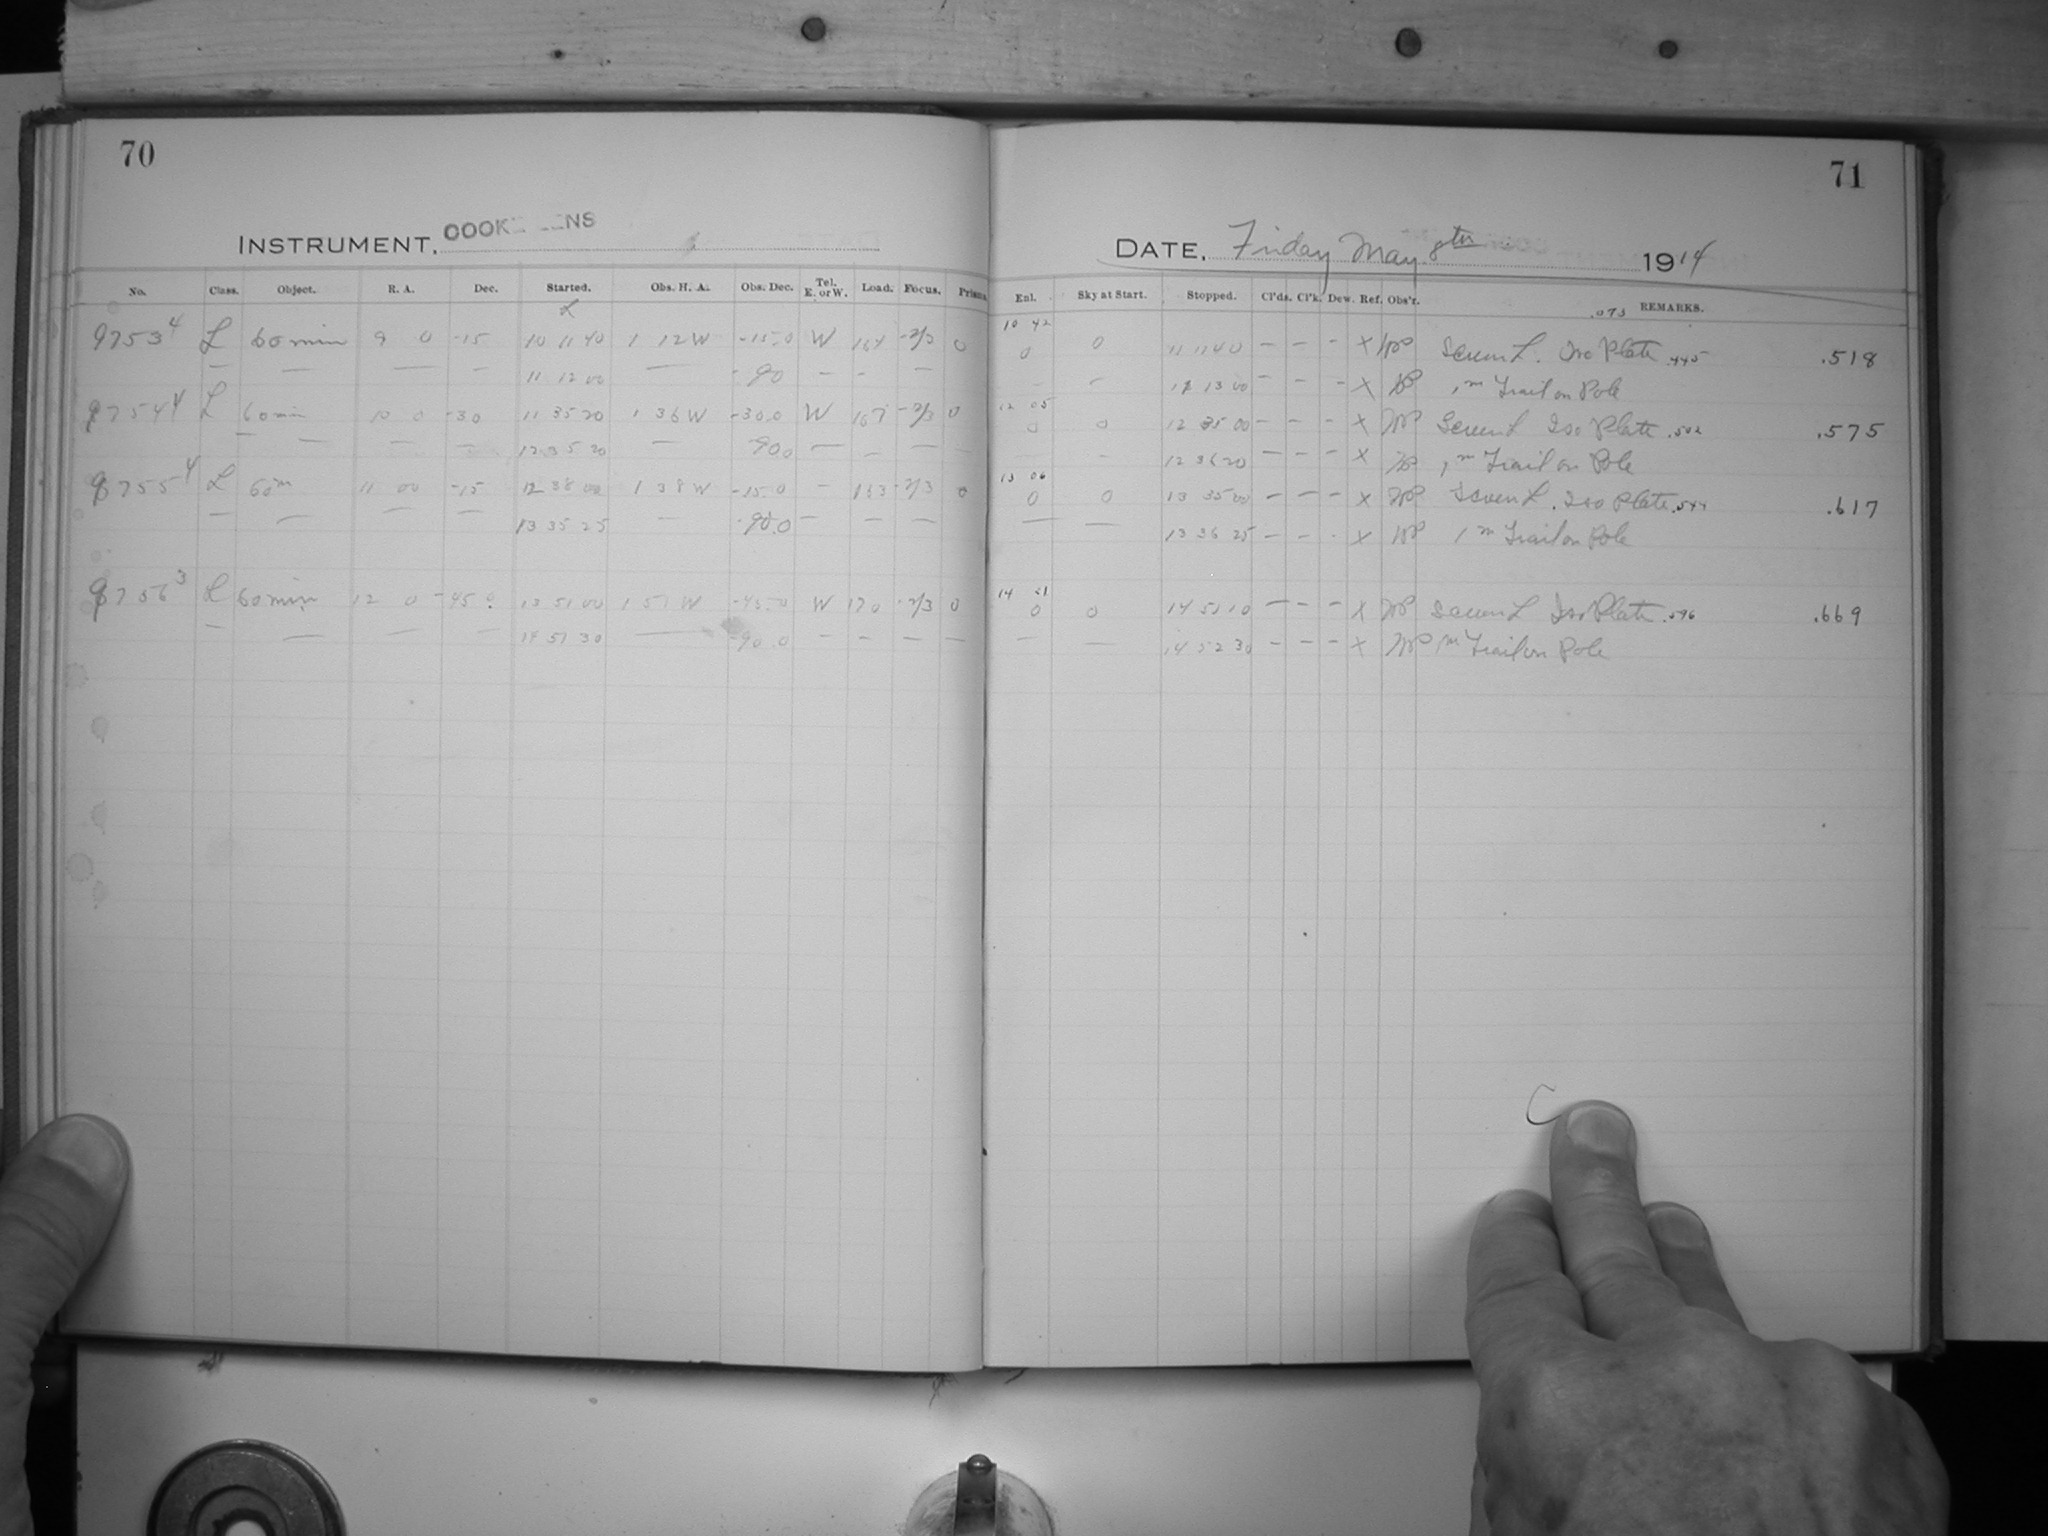 70
INSTRUMENT, COOKE LENS
No. Class. Object. R. A. Dec. Started. Obs. H. A. Obs. Dec. Tel. E. or W. Load. Focus. Prisms
9753 4 L 60 min 9 0 -15 10 11 40 1 12 W -15.0 W 164 -2/3 0
— — — — 11 12 00 — -90 — - —
9754 4 L 60 min 10 0 -30 11 35 20 1 36 W -30.0 W 167 -2/3 0
— — — — 12 35 20 — 90.0 — — — —
9755 4 L 60m 11 00 -15 12 38 00 1 38 W -15.0 - 163 -2/3 0
— — — — 13 35 25 — -90.0 — — —
9756 3 L 60 min 12 0 -45 0 13 51 00 1 51 W -45.0 W 170 -2/3 0
— — — — 14 51 30 — -90.0 — — — —
71
DATE, Friday May 8th 1914
Enl. Sky at Start. Stopped. Cl'ds. Cl'k. Dew. Ref. Obs'r. .073 REMARKS.
10 42
0 0 11 11 40 — — — X Screen L. Iso Plate .445 .518
- — 11 13 00 — — - X 1m Trail on Pole
12 05
0 0 12 35 00 — — — X Screen L Iso Plate .502 .575
— 12 36 20 — — — X 1m Trail on Pole
13 06
0 0 13 35 00 — — — X Screen L. Iso Plate .544 .617
— — 13 36 25 — — - X 1m Trail on Pole
14 21
0 0 14 51 10 — — — X Screen L Iso Plate .596 .669
— — 14 52 30 — — — X 1m Trail on Pole